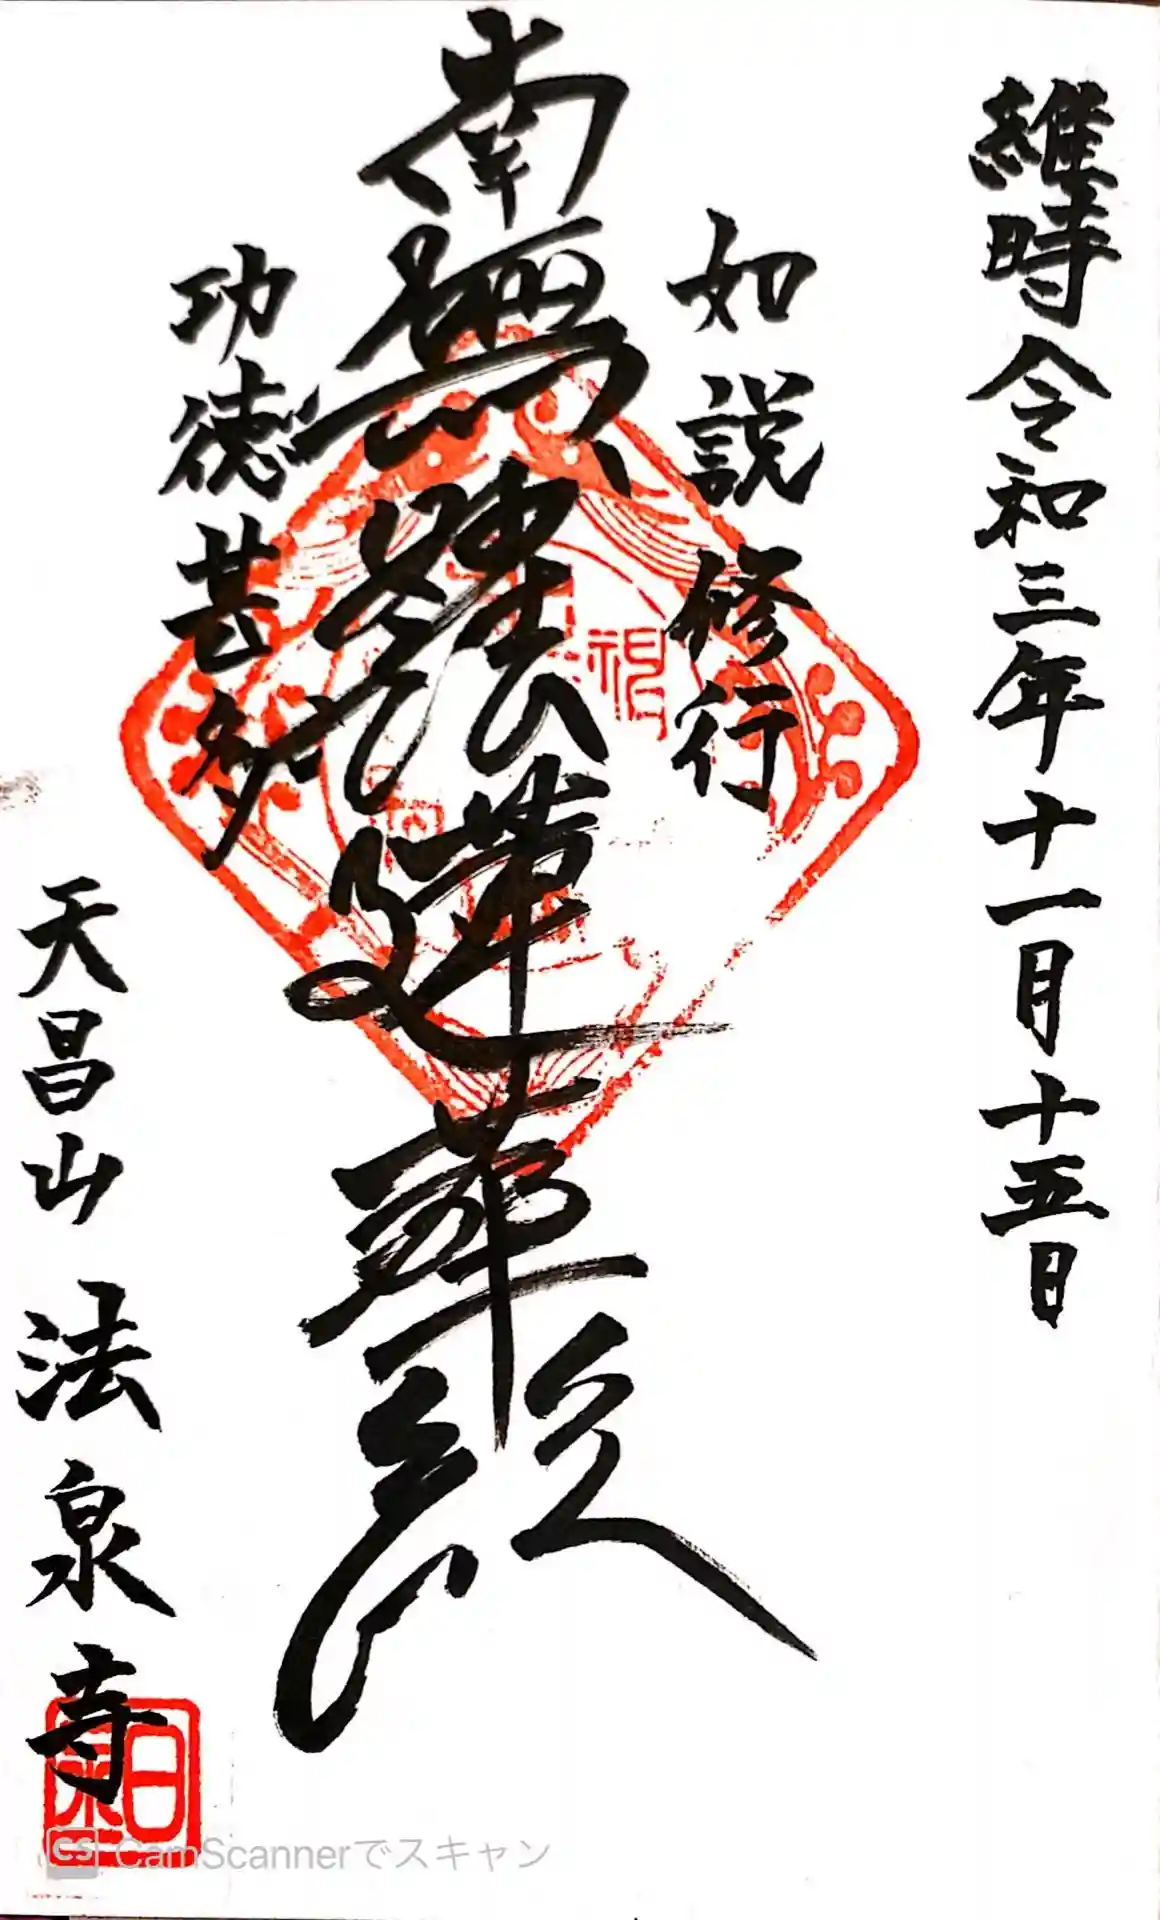 維時令和三年十一月十五日
如説修行
南無妙法蓮華経
功徳甚多
天昌山 法泉寺
CS CamScannerでスキャン